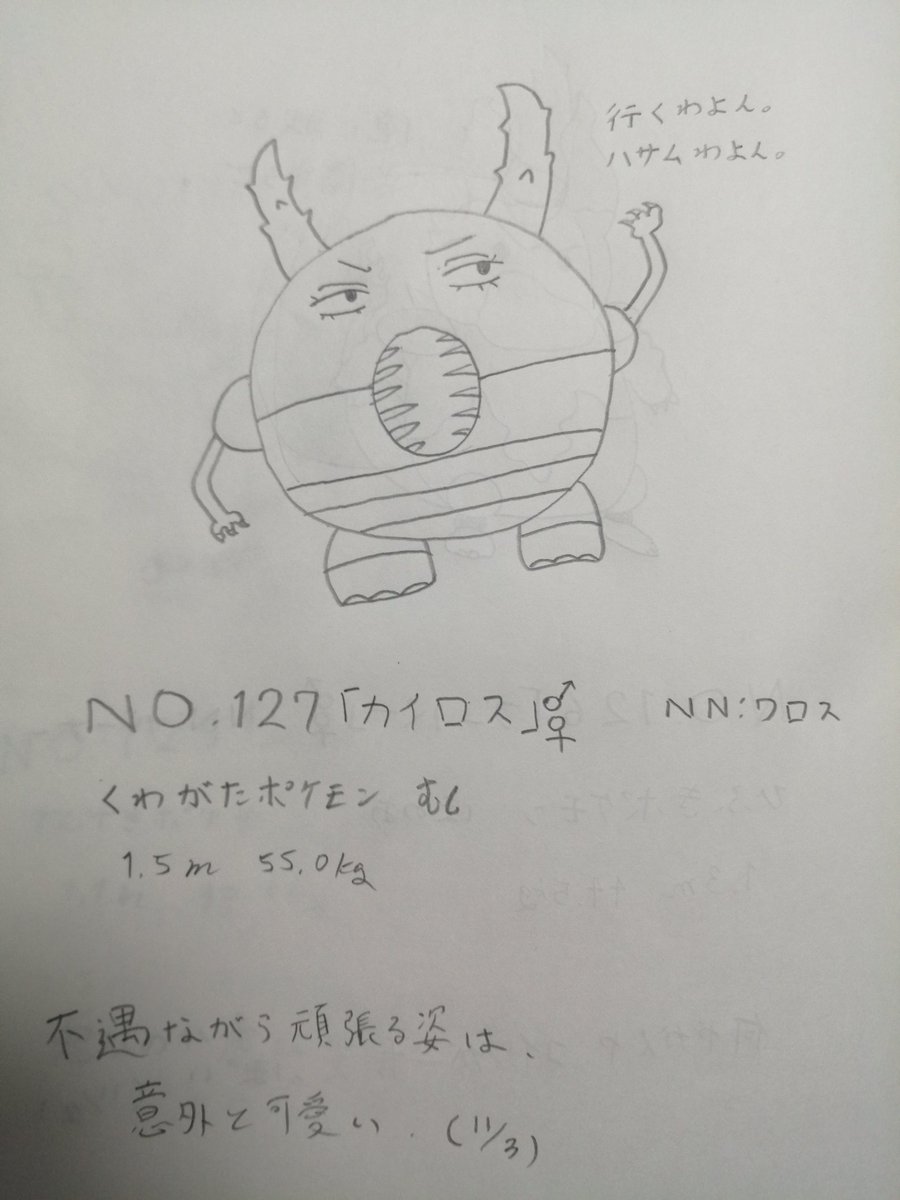 行くわよん。
ハサムわよん。
NO.127「カイロス」♂♀ NN:ワロス
くわがたポケモン むし
1.5m 55.0kg
不遇ながら頑張る姿は、
意外と可愛い.(11/3)